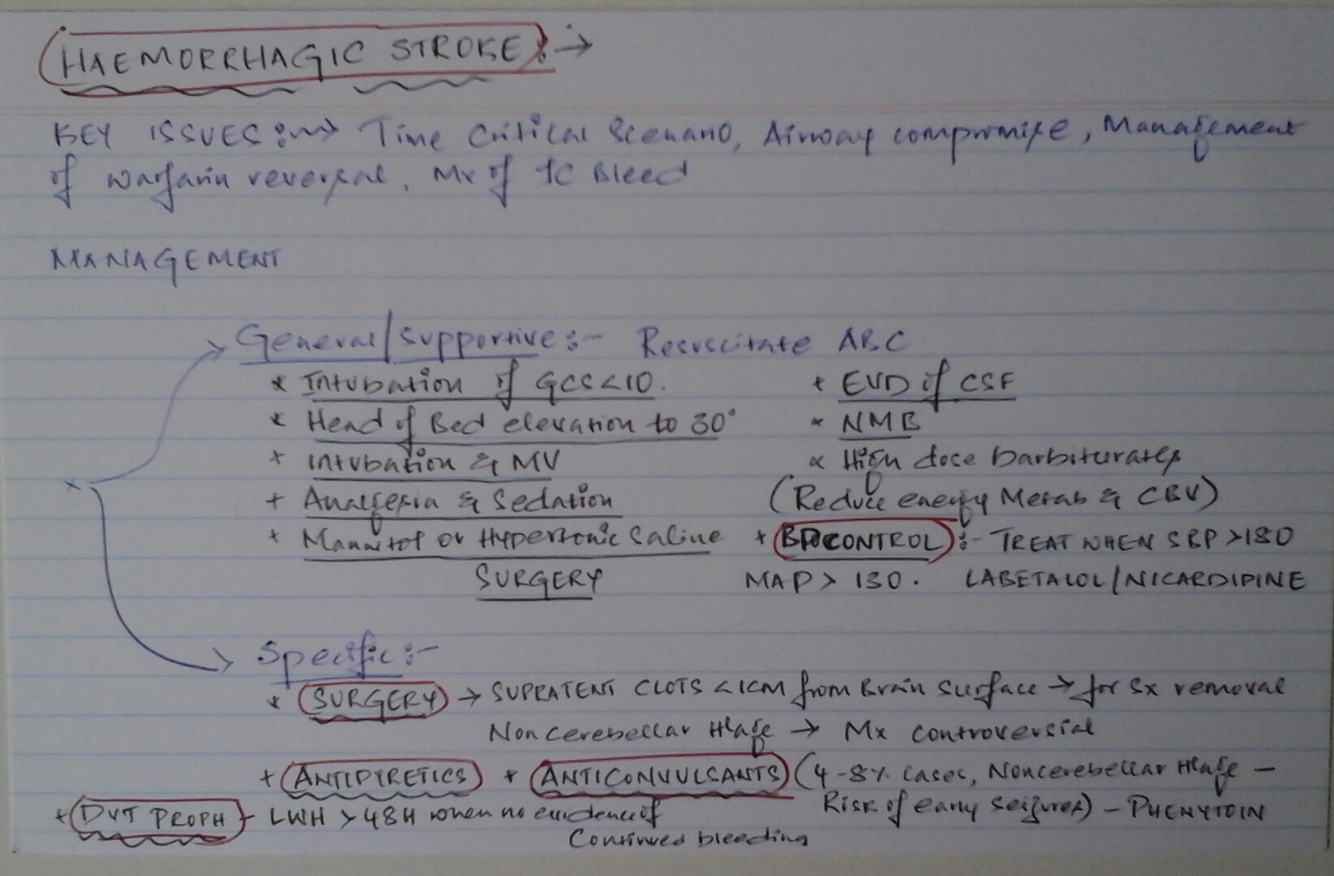 HAEMORRHAGIC STROKE :→
KEY ISSUES :→ Time Critical Scenario, Airway compromise, Management
of warfarin reversal, Mx of IC Bleed
MANAGEMENT
General/Supportive :- Resuscitate ABC
* Intubation if GCS<10.
* Head of Bed elevation to 30°
+ Intubation & MV
+ Analgesia & Sedation
+ Mannitol or Hypertonic Saline
SURGERY
+ EVD of CSF
* NMB
* High dose barbiturates
(Reduce energy Metab & CBV)
+ BP CONTROL :- TREAT WHEN SBP >180
MAP > 130. LABETALOL/NICARDIPINE
Specific :-
* SURGERY → SUPRATENT CLOTS <1CM from Brain Surface → for Sx removal
Noncerebellar Hage → Mx controversial
+ ANTIPIRETICS + ANTICONVULSANTS (4-8% cases, Noncerebellar Hage –
Risk of early seizures) – PHENYTOIN
+ DVT PROPH - LWH >48H when no evidence of
Continued bleeding